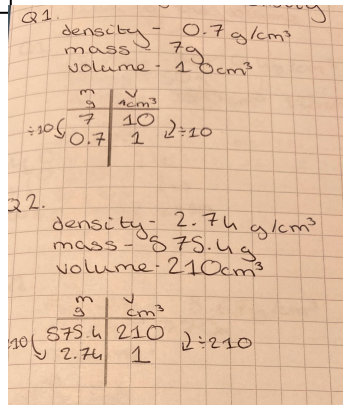 Q1.
density - 0.7 g/cm³
mass - 7g
volume - 10cm³
m v
g 1cm³
7 10
÷10 0.7 1 ÷10
Q2.
density - 2.74 g/cm³
mass - 575.4g
volume - 210cm³
m v
g cm³
575.4 210
10 2.74 1 ÷210